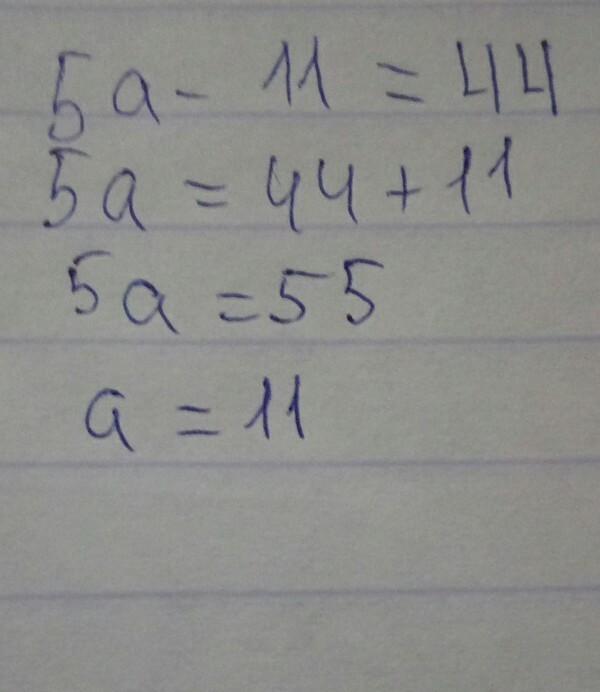 5a - 11 = 44
5a = 44 + 11
5a = 55
a = 11